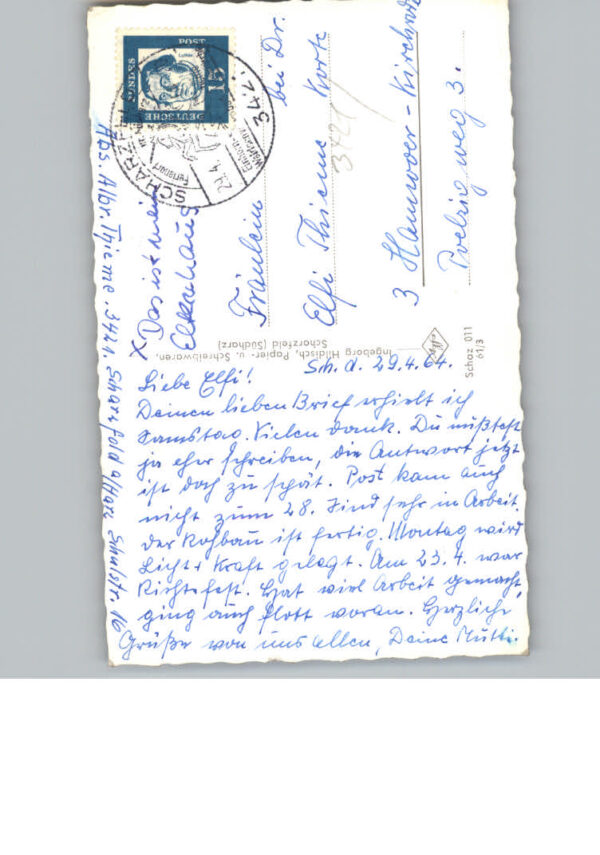 Sch. d. 29.4.64.
Liebe Elfi!
Deinen lieben Brief erhielt ich
Samstag. Vielen dank. Du mußtest
ja eher schreiben, die Antwort jetzt
ist doch zu spät. Post kam auch
nicht zum 28. Sind sehr in Arbeit.
der Rohbau ist fertig. Montag wird
Licht + Kraft gelegt. Am 23.4. war
Richtefest. Hat viel Arbeit gemacht,
ging auch flott voran. Herzliche
Grüße von uns allen, Deine Mutti.
X Das ist mein
Elternhaus
Fräulein
Elfi Thieme
bei Dr. Korte
3 Hannover-Kirchrode
Poelzig weg 3.
3421
Abs. Albr. Thieme. 3421. Scharzfeld a/Harz Schulstr. 16
Ingeborg Hildisch, Papier- u. Schreibwaren,
Scharzfeld (Südharz)
Schaz 011
61/3
DEUTSCHE
BUNDES
POST
15
SCHARZFELD
3421